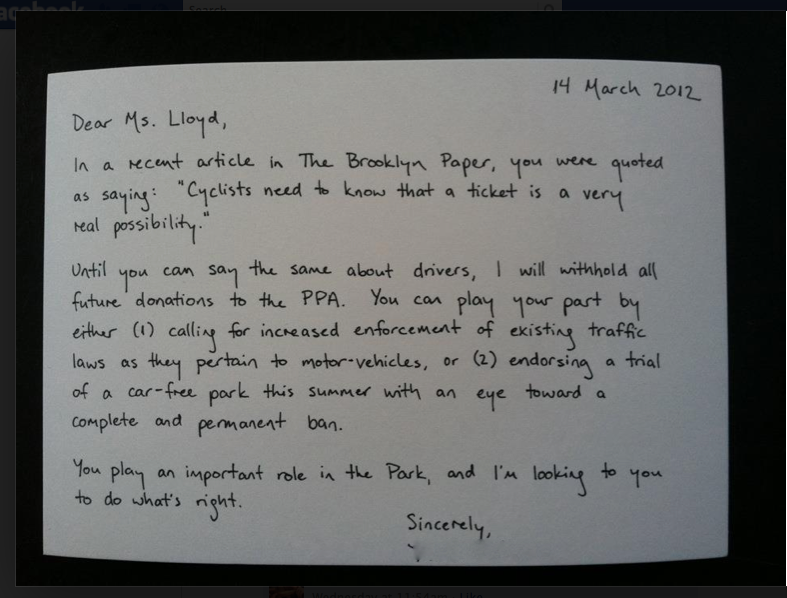 14 March 2012
Dear Ms. Lloyd,
In a recent article in The Brooklyn Paper, you were quoted
as saying: "Cyclists need to know that a ticket is a very
real possibility."
Until you can say the same about drivers, I will withhold all
future donations to the PPA. You can play your part by
either (1) calling for increased enforcement of existing traffic
laws as they pertain to motor-vehicles, or (2) endorsing a trial
of a car-free park this summer with an eye toward a
complete and permanent ban.
You play an important role in the Park, and I'm looking to you
to do what's right.
Sincerely,